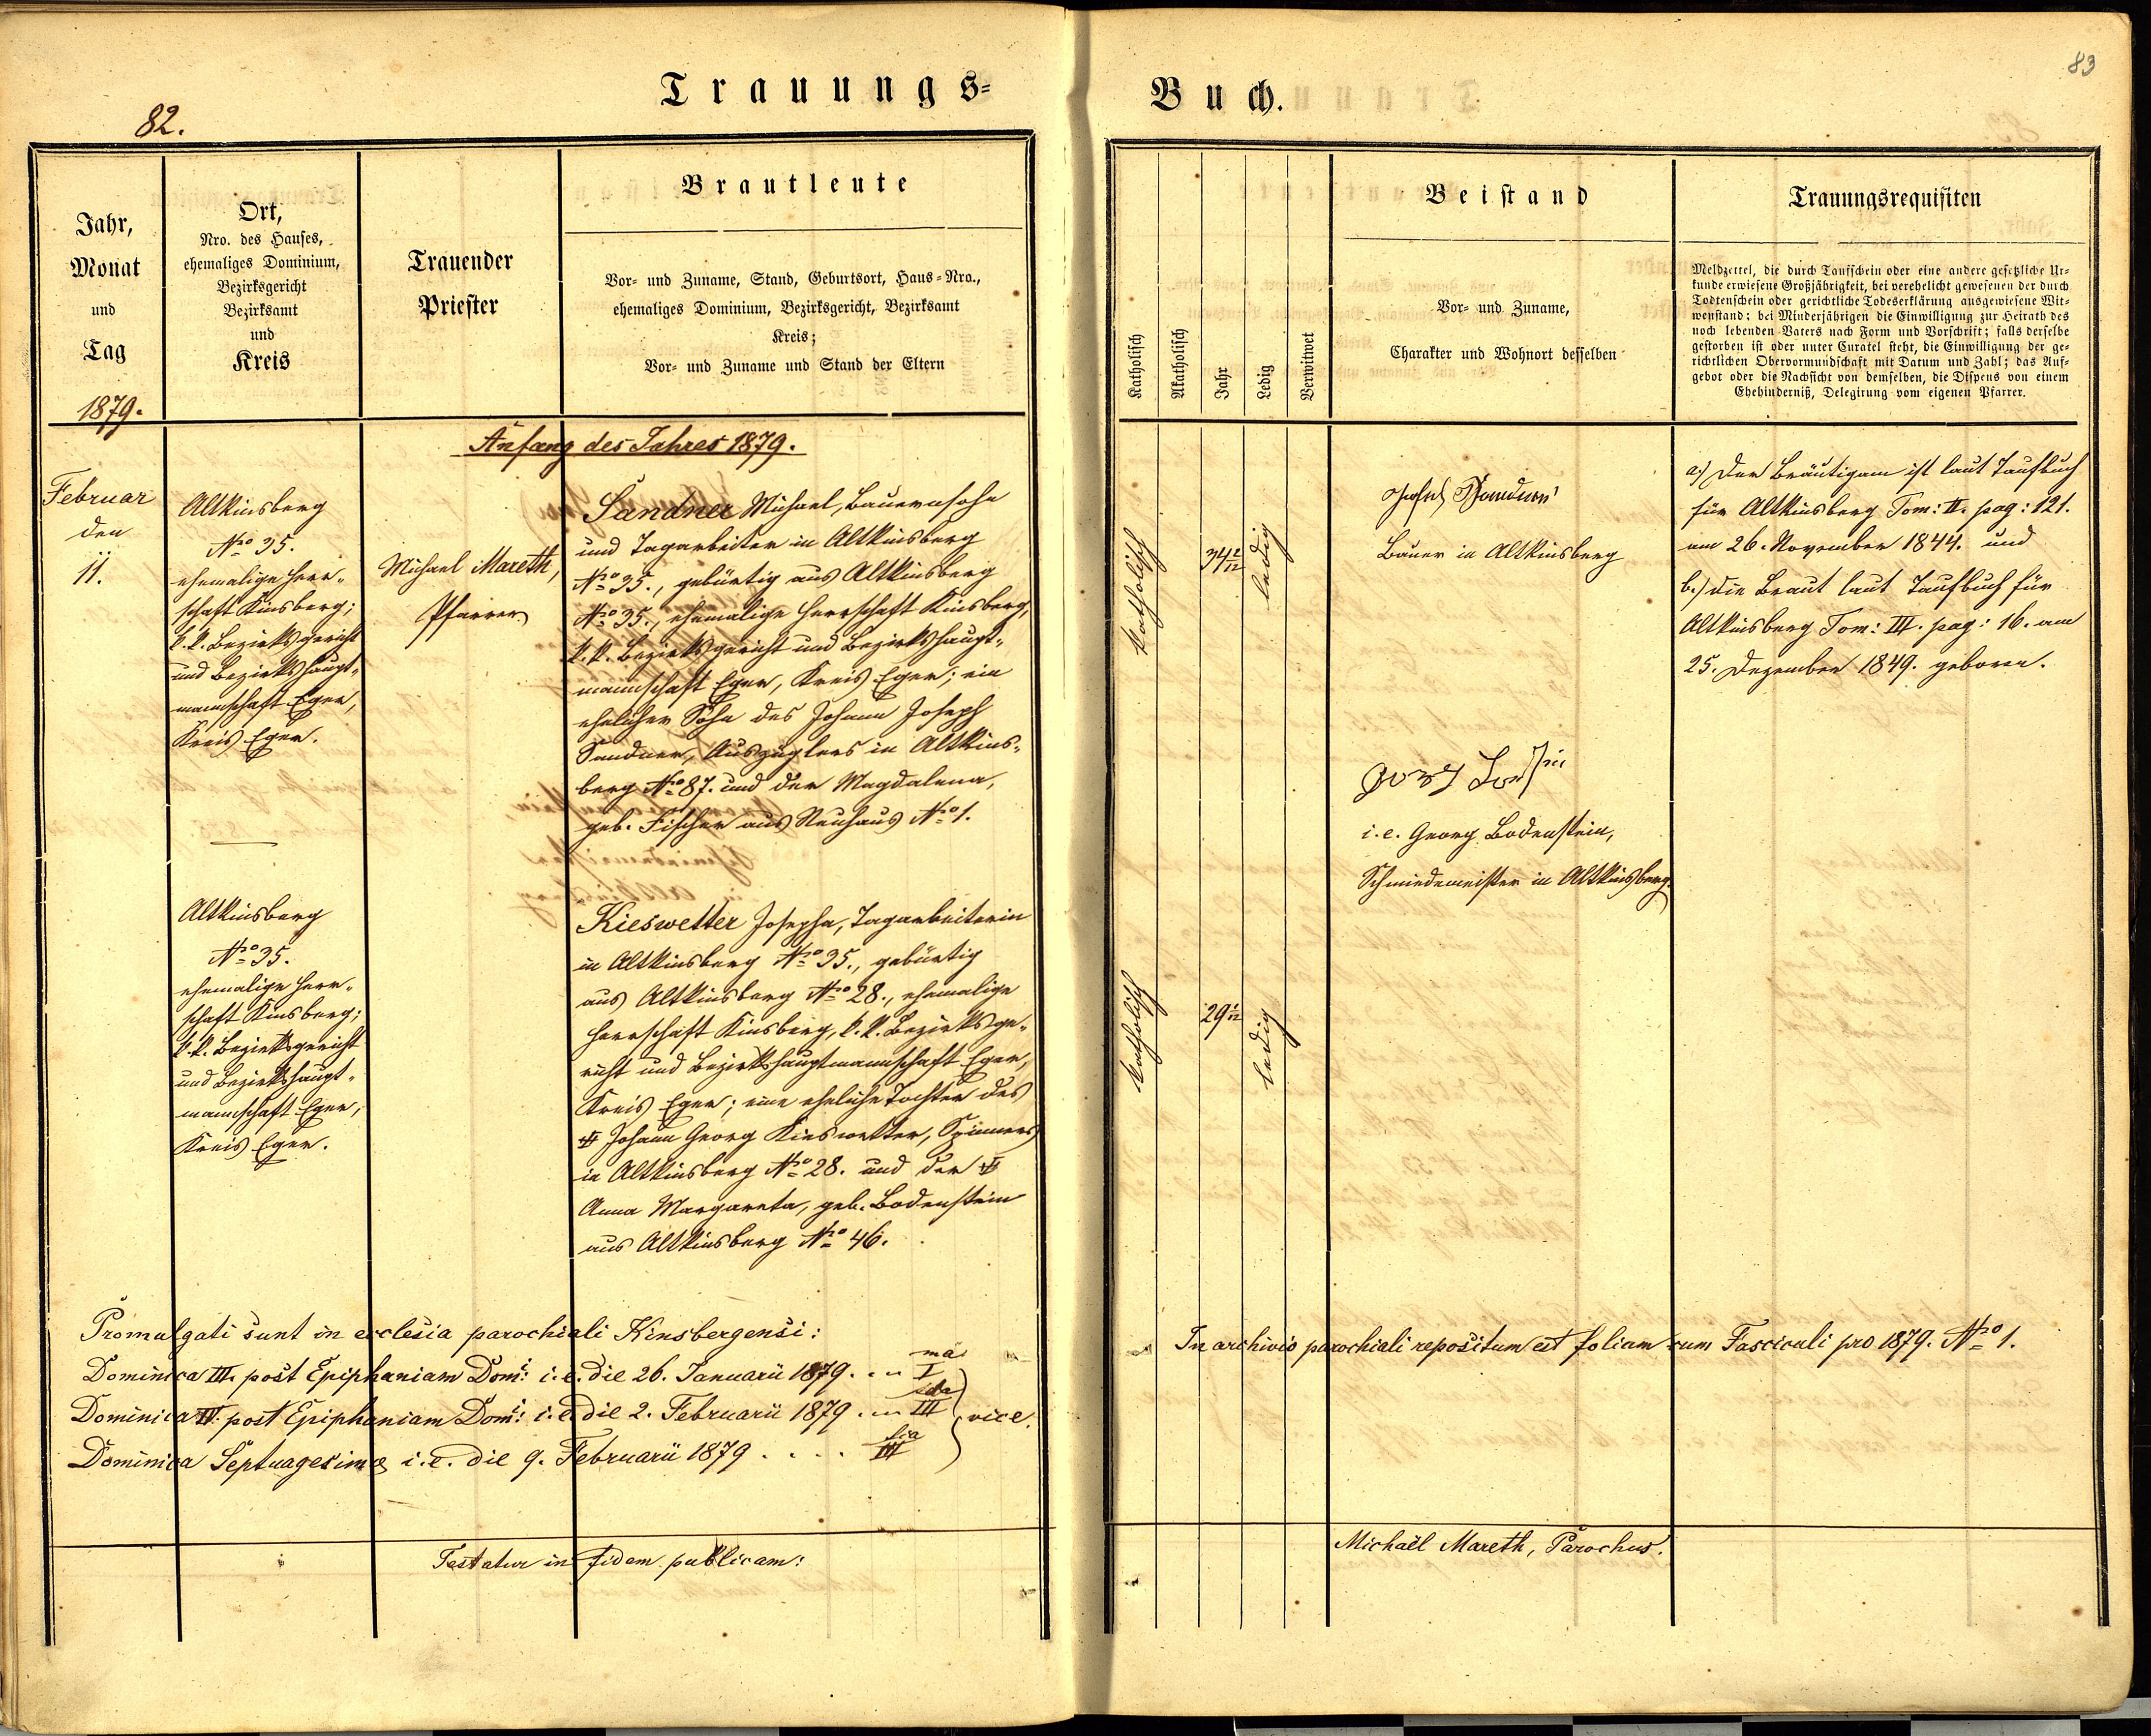 Trauungs-
82.
Jahr,
Monat
und
Tag
1879.
Ort,
Nro. des Hauses,
ehemaliges Dominium,
Bezirksgericht
Bezirksamt
und
Kreis
Trauender
Priester
Brautleute
Vor- und Zuname, Stand, Geburtsort, Haus-Nro.,
ehemaliges Dominium, Bezirksgericht, Bezirksamt
Kreis;
Vor- und Zuname und Stand der Eltern
Anfang des Jahres 1879.
Februar
den
11.
Altkinsberg
No 35.
ehemalige Herr-
schaft Kinsberg;
k.k. Bezirksgericht
und Bezirkshaupt-
mannschaft Eger,
Kreis Eger.
Michael Mareth,
Pfarrer
Sandner Michael, Bauernsohn
und Tagarbeiter in Altkinsberg
No 35., gebürtig aus Altkinsberg
No 35., ehemalige Herrschaft Kinsberg,
k.k. Bezirksgericht und Bezirkshaupt-
mannschaft Eger, Kreis Eger; ein
ehelicher Sohn des Johann Joseph
Sandner, Auszüglers in Altkins-
berg No 87. und der Magdalena,
geb. Fischer aus Neuhaus No 1.
Altkinsberg
No 35.
ehemalige Herr-
schaft Kinsberg;
k.k. Bezirksgericht
und Bezirkshaupt-
mannschaft Eger,
Kreis Eger.
Kieswetter Josepha, Tagarbeiterin
in Altkinsberg No 35., gebürtig
aus Altkinsberg No 28., ehemalige
Herrschaft Kinsberg, k.k. Bezirksge-
richt und Bezirkshauptmannschaft Eger,
Kreis Eger; eine eheliche Tochter des
Johann Georg Kieswetter, Spinners
in Altkinsberg No 28. und der
Anna Margareta, geb. Bodenstein
aus Altkinsberg No 46.
Promulgati sunt in ecclesia parochiali Kinsbergensi:
Dominica III. post Epiphaniam Domi: i.e. die 26. Januarii 1879. .. I ma
Dominica IV. post Epiphaniam Domi: i.e. die 2. Februarii 1879. .. II da vice.
Dominica Septuagesima i.e. die 9. Februarii 1879 . . . . III tia
Testatur in fidem publicam:
Buch.
83
Katholisch
Akatholisch
Jahr
Ledig
Verwitwet
Beistand
Vor- und Zuname,
Charakter und Wohnort desselben
Trauungsrequisiten
Meldzettel, die durch Taufschein oder eine andere gesetzliche Ur-
kunde erwiesene Großjährigkeit, bei verehelicht gewesenen der durch
Todtenschein oder gerichtliche Todeserklärung ausgewiesene Wit-
wenstand; bei Minderjährigen die Einwilligung zur Heirath des
noch lebenden Vaters nach Form und Vorschrift; falls derselbe
gestorben ist oder unter Curatel steht, die Einwilligung der ge-
richtlichen Obervormundschaft mit Datum und Zahl; das Auf-
gebot oder die Nachsicht von demselben, die Dispens von einem
Ehehinderniß, Delegirung vom eigenen Pfarrer.
katholisch
34 2/12
ledig
Bauer in Altkinsberg
a.) Der Bräutigam ist laut Taufbuch
für Altkinsberg Tom: II. pag: 121.
am 26. November 1844. und
b.) die Braut laut Taufbuch für
Altkinsberg Tom: III. pag: 16. am
25. Dezember 1849. geboren.
i.e. Georg Bodenstein,
Schmiedemeister in Altkinsberg.
katholisch
29 1/12
ledig
In archivio parochiali repositum est folium cum Fasciculi pro 1879. No 1.
Michaël Mareth, Parochus.